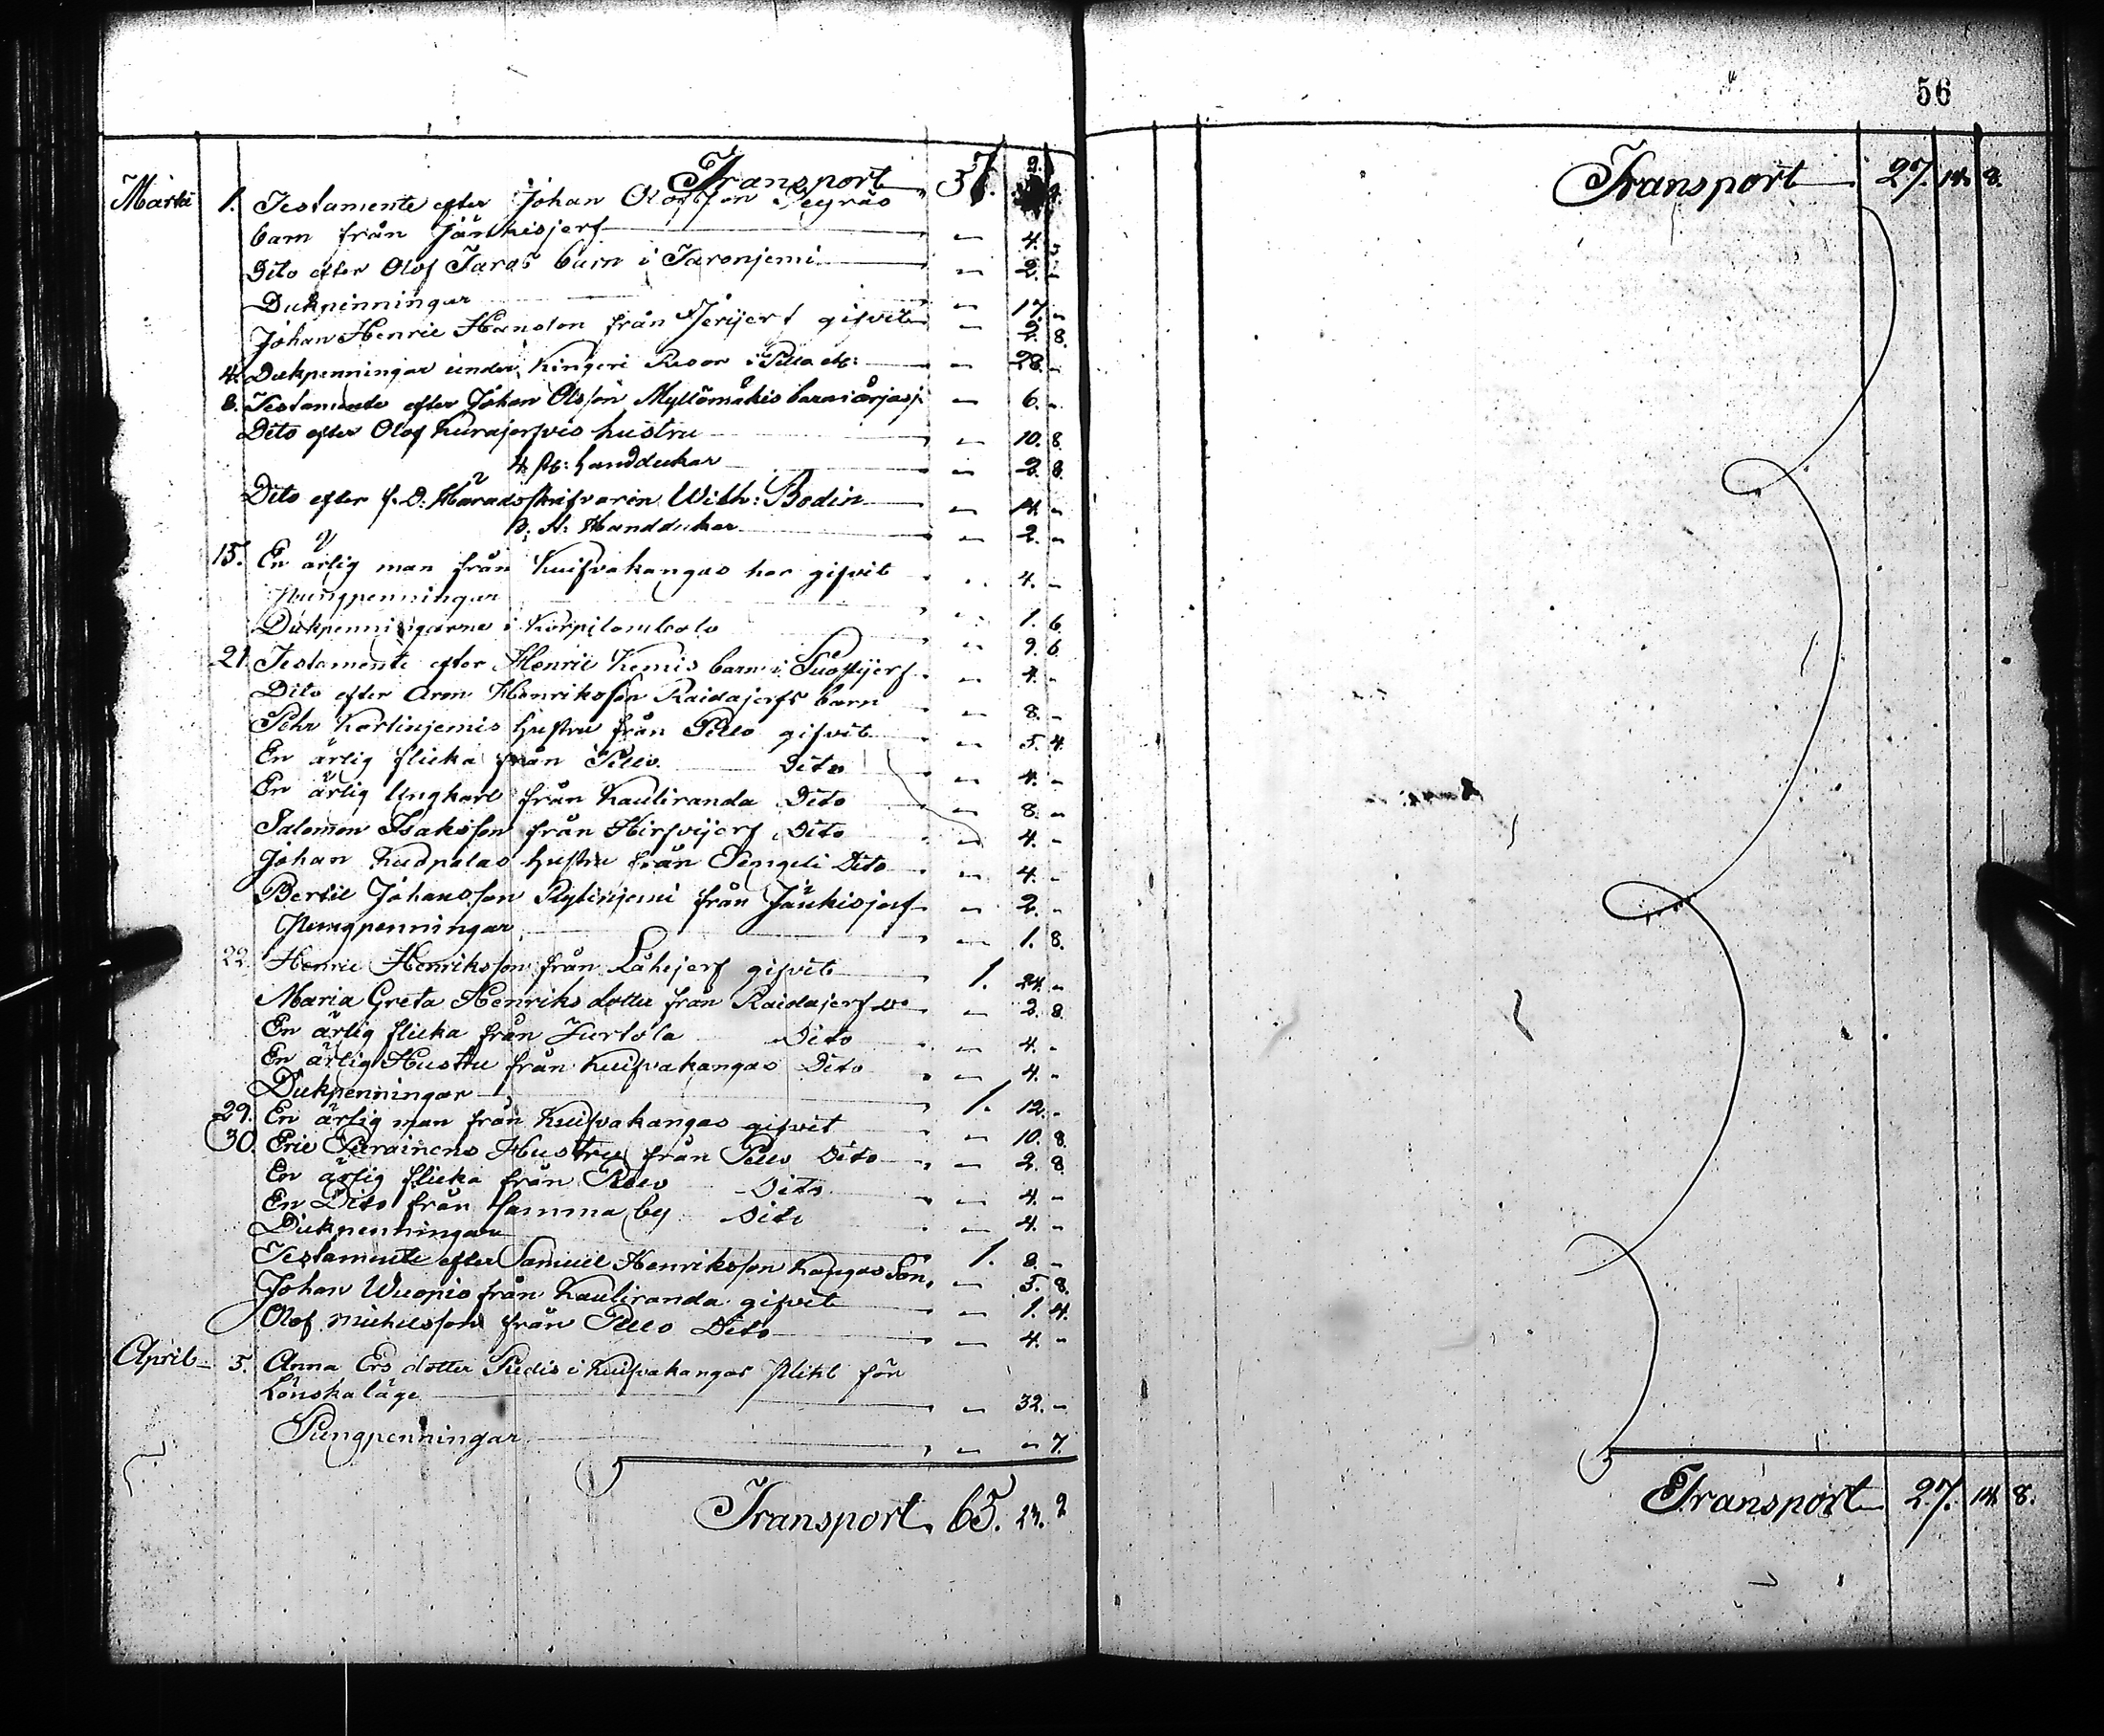 Transport 37. 2.
Martii 1. Testamente efter Johan Olofsson
barn från Jänkisjerf " 4.
Dito efter Olof Taros barn i Taronjemi " 2. "
Dukpenningar " 17. "
Johan Henric Hansson från Jerijerf gifvit " 2. 8.
4. Dukpenningar under Kingeri Resor i Pello etc: " 28. "
8. Testamente efter Johan Olsson Myllömäkis barn i " 6. "
Dito efter Olof Kurajerfvis hustru " 10. 8.
4 st: handdukar " 2. 8.
Dito efter f. D. Häradsskrifvaren Wilh: Bodin " 14. "
3. st: Handdukar " 2. "
15. En ärlig man från Kuifvakangas har gifvit " 4. "
Pungpenningar " 1. 6.
Dukpenningarne i Korpilombolo " 9. 6.
21. Testamente efter Henric Kemis barn i " 4. "
Dito efter Aron Henriksson Raidajerfs barn " 8. "
Pehr Kortinjemis hustru från Pello gifvit " 5. 4.
En ärlig flicka från Pello Dito " 4. "
En ärlig Ungkarl från Kauliranda Dito " 8. "
Salomon Isaksson från Hirfvijerf Dito " 4. "
Johan Kuopalas hustru från Pengeli Dito " 4. "
Bertil Johansson Rytinjemi från Jänkisjerf " 2. "
Pungpenningar " 1. 8.
22. Henric Henriksson från Låhijerf gifvit 1. 24. "
Maria Greta Henriks dotter från Raidajerf Do " 2. 8.
En ärlig flicka från Turtola Dito " 4. "
En ärlig Hustru från Kuifvakangas Dito " 4. "
Dukpenningar 1. 12. "
29. En ärlig man från Kuifvakangas gifvit " 10. 8.
30. Eric Hustru från Pello Dito " 2. 8.
En ärlig flicka från Pello Dito " 4. "
En Dito från samma by Dito " 4. "
Dukpenningar 1. 8. "
Testamente efter Samuel Henriksson Kangas Son, " 5. 8.
Johan Wuopio från Kauliranda gifvit " 1. 4.
Olof Michelsson från Pello Dito " 4. "
April 5. Anna Ers dotter Pudis i Kuifvakangas Plikt för
Lönskaläge " 32. "
Pungpenningar " " 7.
Transport. 65. 2
56
Transport 27. 14. 8.
Transport 27. 14. 8.